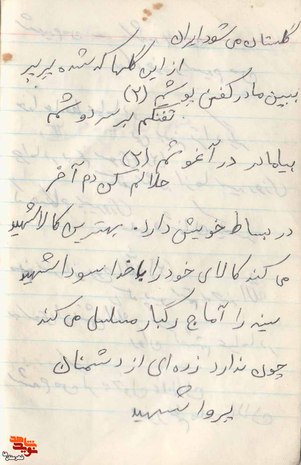 گلستان می شود ایران
از این گلها که شده پرپر
ببین مادر کفن پوشم (۲)
تفنگم بر سر دوشم
بیا مادر در آغوشم (۲)
حلالم کن دم آخر
در بساط خویش دارد. بهترین کالا شهید
می کند کالای خود را با خدا سودا شهید
سینه را آماج رگبار مسلسل می کند
چون ندارد ذره ای از دشمنان
پروا شهید
نوید شاهد